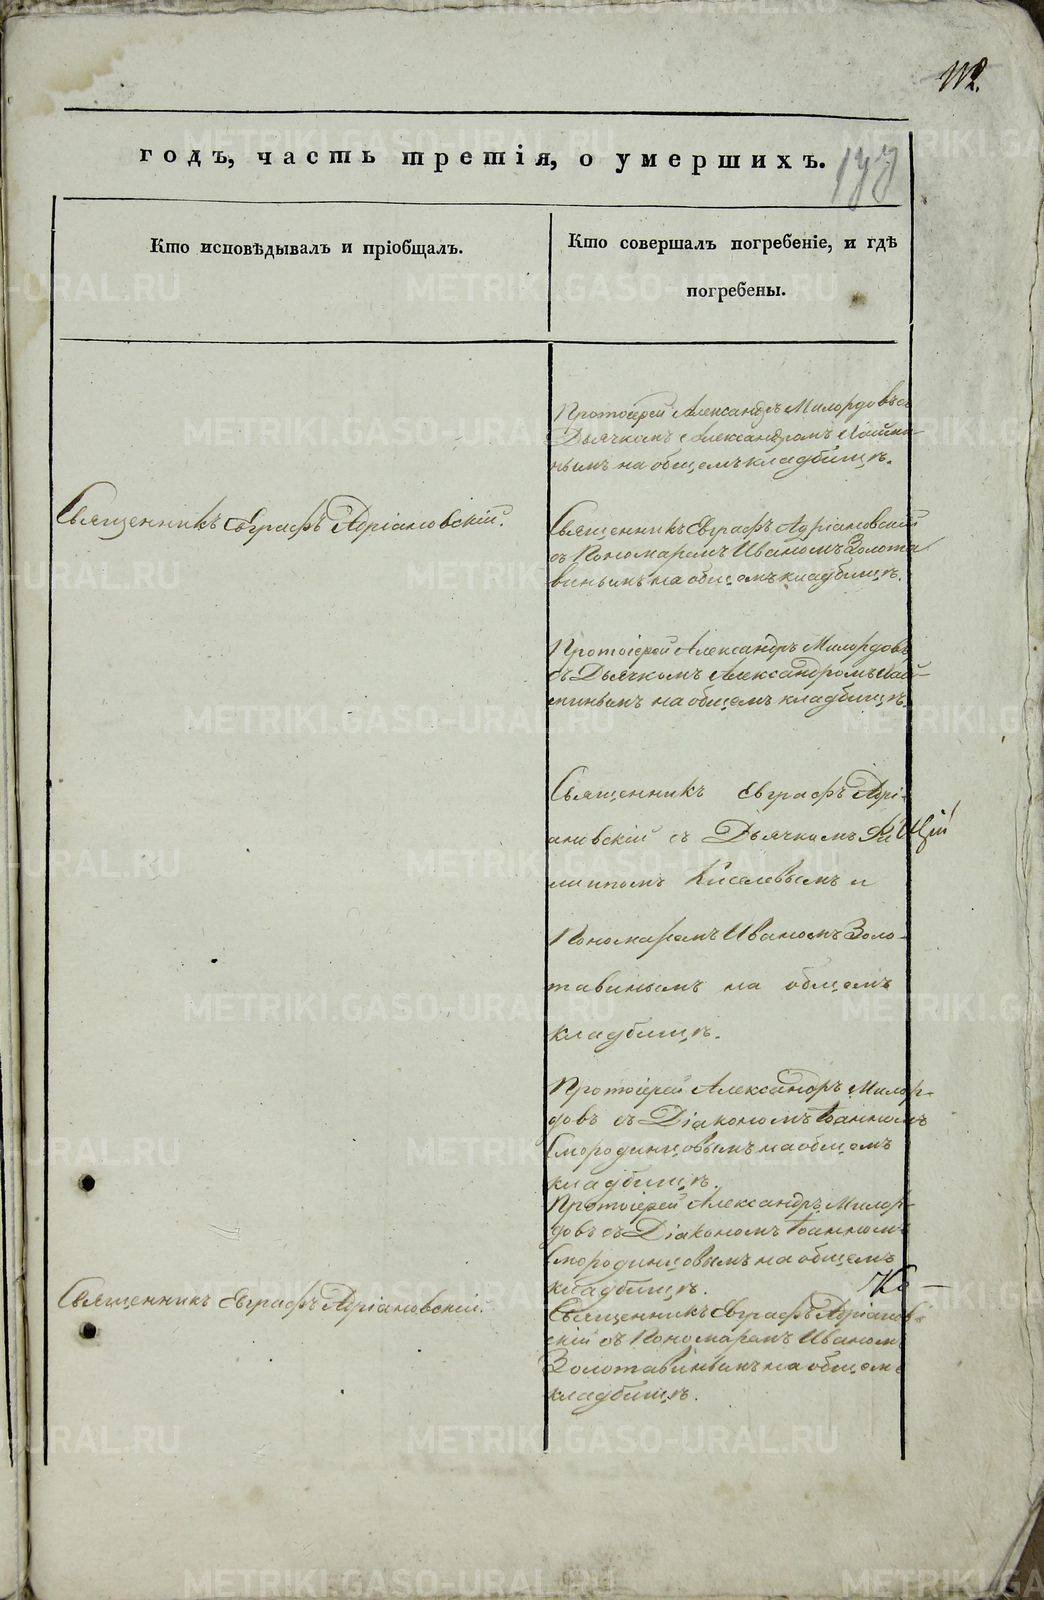 годъ, часть третія, о умершихъ.
177
Кто исповѣдывалъ и пріобщалъ.
Кто совершалъ погребеніе, и гдѣ
погребены.
Протоіерей Александръ Милордовъ съ
Дьячкомъ Александромъ
нымъ на общемъ кладбищѣ.
Священникъ Евграфъ Адріановскій.
Священникъ Евграфъ Адріановскій
съ Пономаремъ Иваномъ Золота
винымъ на общемъ кладбищѣ.
Протоіерей Александръ Милордовъ
съ Дьячкомъ Александромъ
на общемъ кладбищѣ.
Священникъ Евграфъ Адрі-
ановскій съ Дьячкомъ Фи
липпомъ Киселевымъ и
Пономаремъ Иваномъ Золо-
тавинымъ на общемъ
кладбищѣ.
Протоіерей Александръ Милор-
довъ съ Діакономъ Іоанномъ
Смородинцовымъ на общемъ
кладбищѣ.
Протоіерей Александръ Милор-
довъ съ Діакономъ Іоанномъ
Смородинцовымъ на общемъ
кладбищѣ.
Священникъ Евграфъ Адріановскій.
Священникъ Евграфъ Адріанов-
скій съ Пономаремъ Иваномъ
Золотавинымъ на общемъ
кладбищѣ.
METRIKI.GASO-URAL.RU